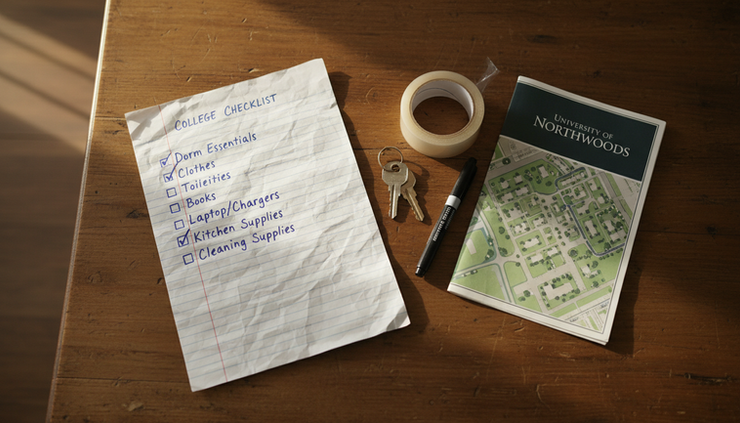 COLLEGE CHECKLIST
Dorm Essentials
Clothes
Toileities
Books
Laptop/Chargers
Kitchen Supplies
Cleaning Supplies
UNIVERSITY OF
NORTHWOODS